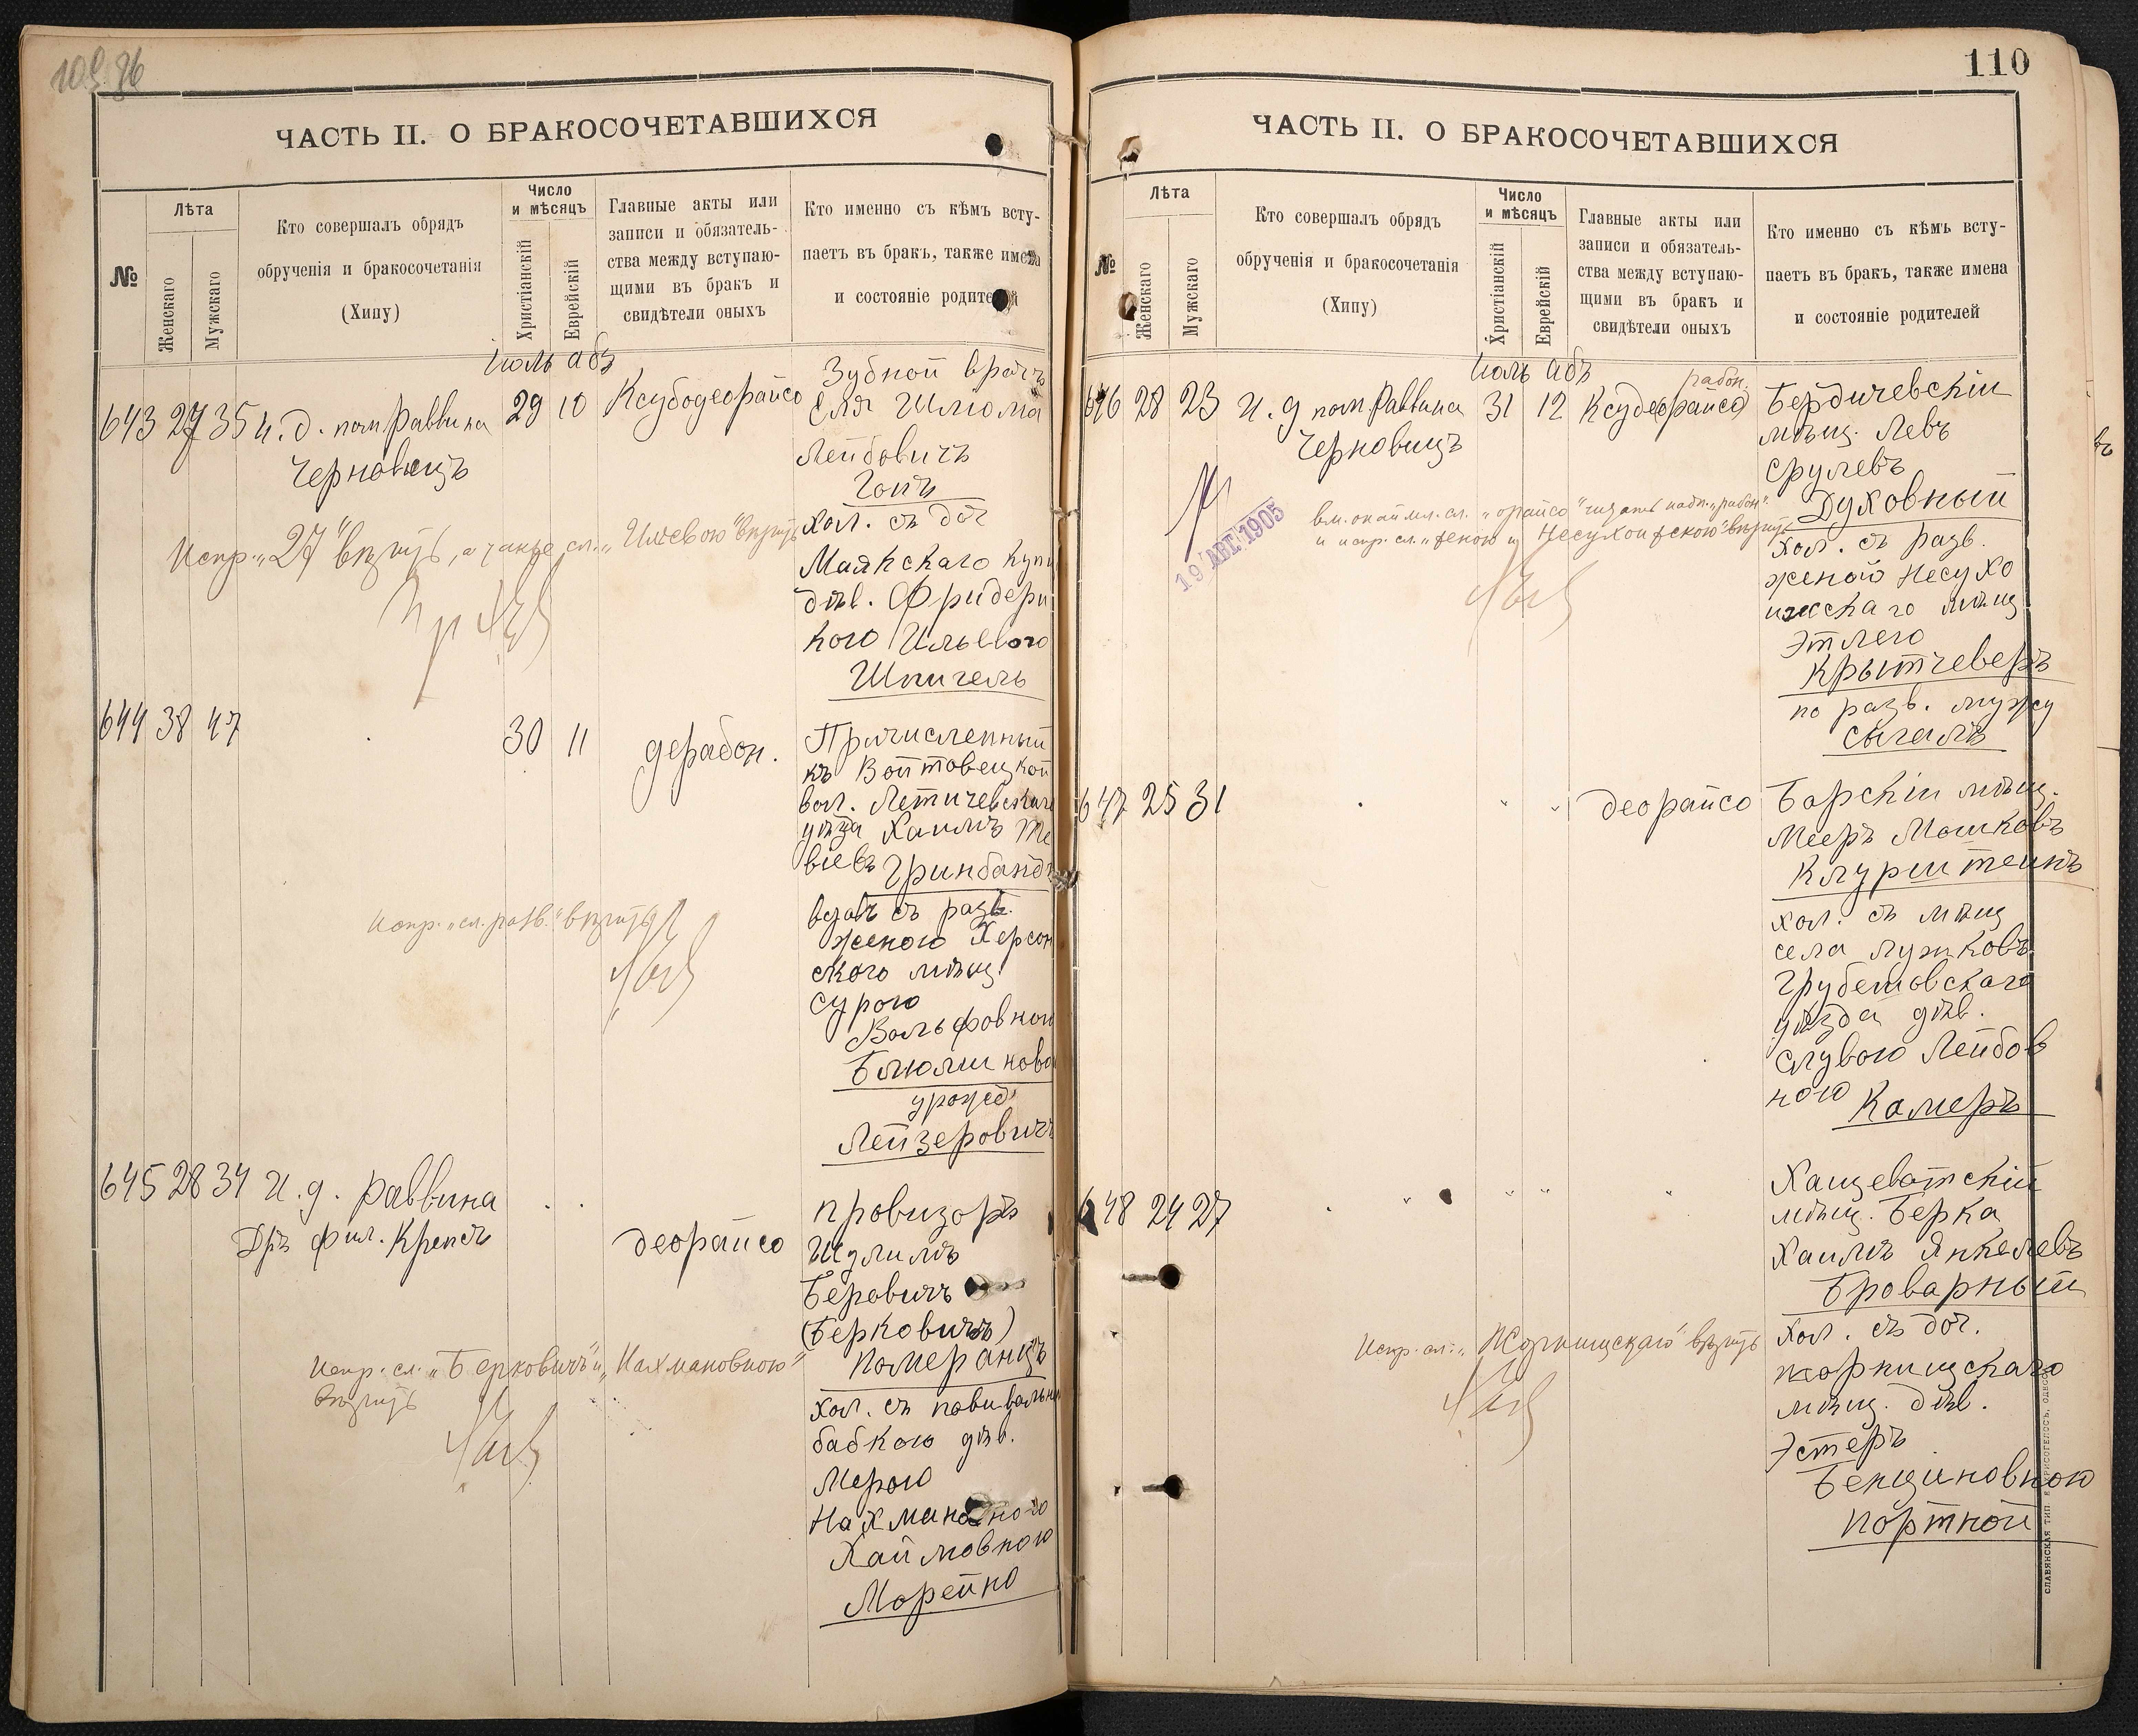 ЧАСТЬ II. О БРАКОСОЧЕТАВШИХСЯ
№
Лѣта
Женскаго
Мужскаго
Кто совершалъ обрядъ
обрученія и бракосочетанія
(Хипу)
Число
и мѣсяцъ
Христіанскій
Еврейскій
Главные акты или
записи и обязатель-
ства между вступаю-
щими въ бракъ и
свидѣтели оныхъ
Кто именно съ кѣмъ всту-
паетъ въ бракъ, также имена
и состояніе родителей
Іюль Абъ
643 27 35 И. д. пом. Раввина
Черновицъ
29 10
Ксубодеорайсо
Зубной врачъ
Еля Шлюма
Лейбовичъ
Гопъ
хол. съ доч
Маякскаго куп
дѣв. Фридери
кого Ильевою
Шпигель
Испр. „27" вѣрить, а также сл. „Ильевою" вѣрить
644 38 47
30 11
дерабон.
Причисленный
къ Войтовецкой
вол. Летичевскаго
уѣзда Хаимъ Те
віевъ Гринбандъ
вдов. съ разв.
женою Херсон
скаго мѣщ.
Сурою
Вольфовною
Блюмкова
урожд.
Лейзеровичъ
Испр. „сл. разв." вѣрить
645 28 34 И. д. Раввина
Дръ фил. Крепсъ
деорайсо
провизоръ
Шулимъ
Беровичъ
(Берковичъ)
Померанцъ
хол. съ повивальн
бабкою дѣв.
Мерою
Нахмановною
Хаймовною
Морейно
Испр. сл. „Берковичъ" и „Нахмановною"
вѣрить
110
ЧАСТЬ II. О БРАКОСОЧЕТАВШИХСЯ
№
Лѣта
Женскаго
Мужскаго
Кто совершалъ обрядъ
обрученія и бракосочетанія
(Хипу)
Число
и мѣсяцъ
Христіанскій
Еврейскій
Главные акты или
записи и обязатель-
ства между вступаю-
щими въ бракъ и
свидѣтели оныхъ
Кто именно съ кѣмъ всту-
паетъ въ бракъ, также имена
и состояніе родителей
Іюль Абъ
646 28 23 И. д. пом. Раввина
Черновицъ
31 12
рабон.
Ксудеорайсо
Бердичевскій
мѣщ. Левъ
Срулевъ
Духовный
хол. съ разв.
женой Несухо
ижскаго мѣщ
Этлею
Крытчеверъ
по разв. мужу
Сыгалъ
19 АВГ. 1905
647 25 31
" "
деорайсо
Барскій мѣщ.
Мееръ Мошковъ
Клурштейнъ
хол. съ мѣщ
села Лушковъ
Грубешовскаго
уѣзда дѣв.
Слувою Лейбов
ною Камеръ
648 24 27
" " "
Хащеватскій
мѣщ. Берка
Хаимъ Янкелевъ
Броварный
хол. съ доч.
жорнищскаго
мѣщ. дѣв.
Эстеръ
Бенціновною
Портной
Испр. сл. „Жорнищскаго" вѣрить
СЛАВЯНСКАЯ ТИП. Е. ХРИСОГЕЛОСЪ, ОДЕССА